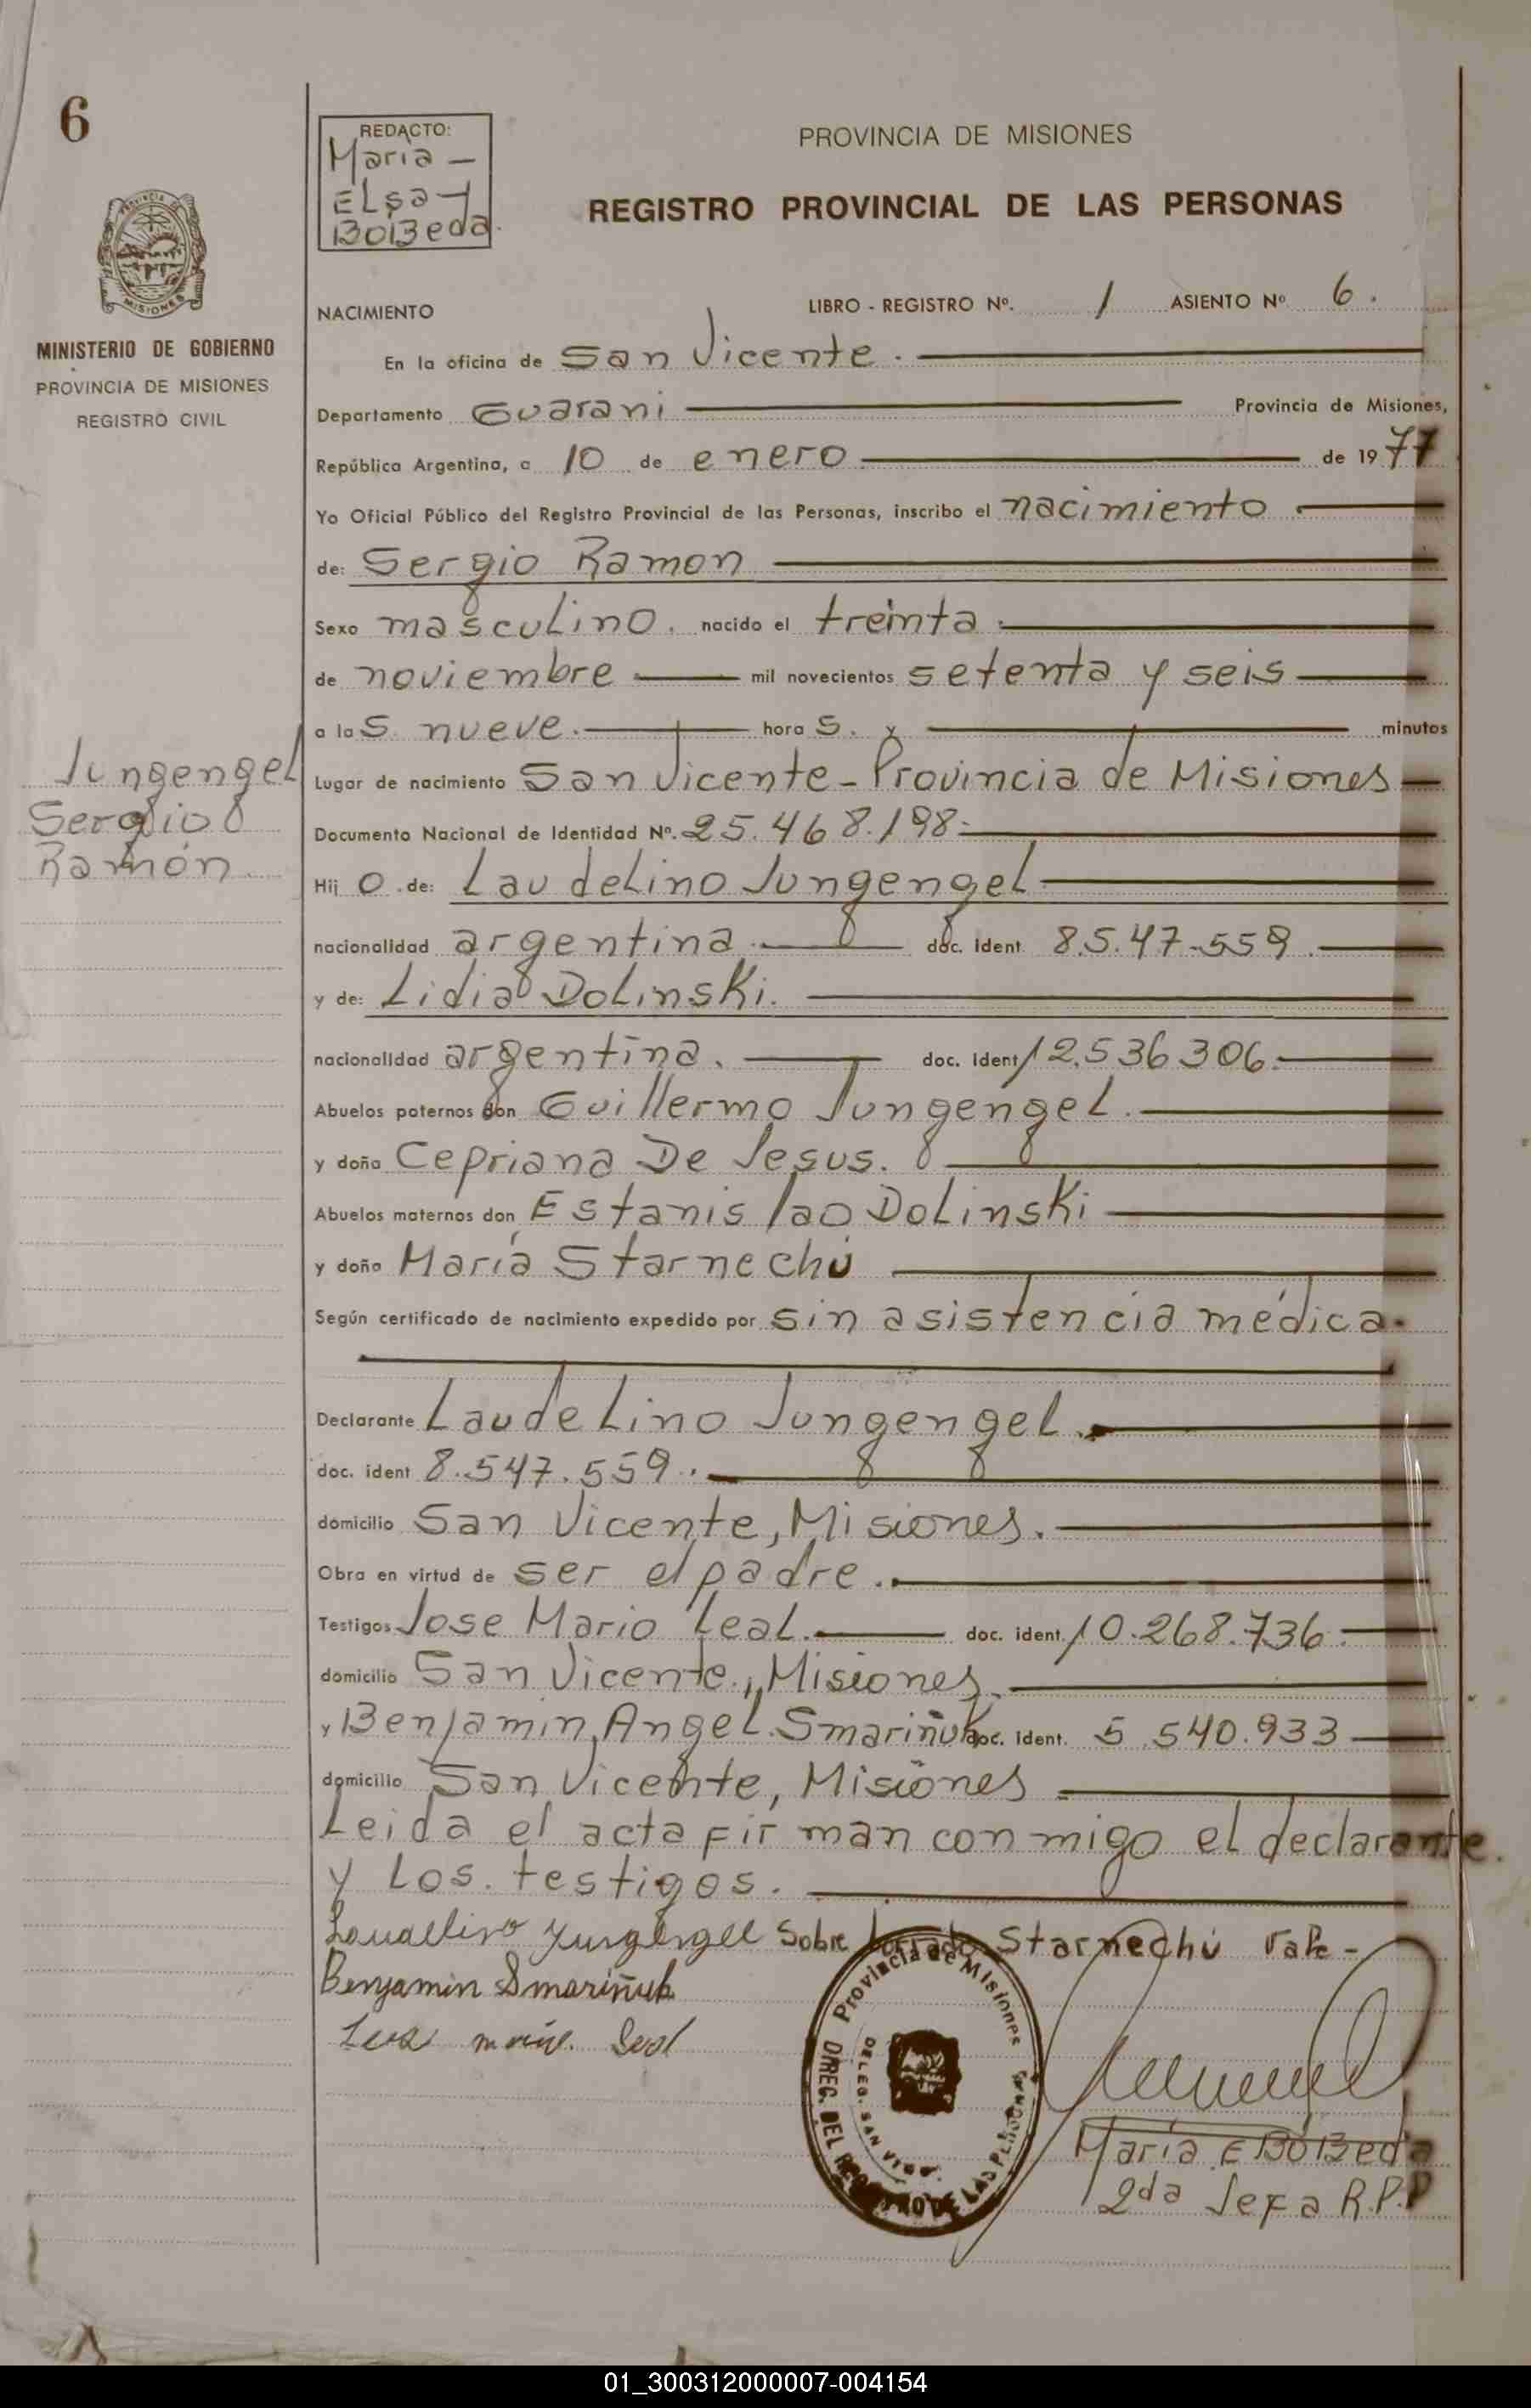 6
REDACTO:
Maria
Elsa
BOBeda.
PROVINCIA DE MISIONES
REGISTRO PROVINCIAL DE LAS PERSONAS
MISIONES
MINISTERIO DE GOBIERNO
PROVINCIA DE MISIONES
REGISTRO CIVIL
NACIMIENTO LIBRO - REGISTRO Nº. 1 ASIENTO Nº 6.
En la oficina de San Vicente.
Departamento Guarani Provincia de Misiones,
República Argentina, a 10 de enero de 1977
Yo Oficial Público del Registro Provincial de las Personas, inscribo el nacimiento
de: Sergio Ramon
Sexo masculino. nacido el treinta
de noviembre mil novecientos setenta y seis
a las nueve. horas. y minutos
Lugar de nacimiento San Vicente - Provincia de Misiones
Jungengel
Sergio
Ramón.
Documento Nacional de Identidad Nº. 25.468.198
Hijo de: Laudelino Jungengel
nacionalidad argentina. doc. ident 8.5.47-559.
y de: Lidia Dolinski.
nacionalidad argentina. doc. ident 12.536306.
Abuelos paternos don Guillermo Jungengel.
y doña Cepriana De Jesus.
Abuelos maternos don Estanislao Dolinski
y doña María Starnechú
Según certificado de nacimiento expedido por sin asistencia médica.
Declarante Laudelino Jungengel.
doc. ident 8.547.559.
domicilio San Vicente, Misiones.
Obra en virtud de ser el padre.
Testigos Jose Mario Leal. doc. ident. 10.268.736.
domicilio San Vicente, Misiones.
y Benjamin, Angel. Smariñuk doc. ident. 5.540.933
domicilio San Vicente, Misiones
Leida el acta firman conmigo el declarante.
y los. testigos.
Laudelino Jungengel Sobre borrado Starnechú Vale -
Benjamin Smariñuk
Provincia de Misiones
DIREC. DEL REGISTRO DE LAS PERSONAS
DELEG. SAN
María E BOBeda
2da Jefa R.P.P
01_300312000007-004154